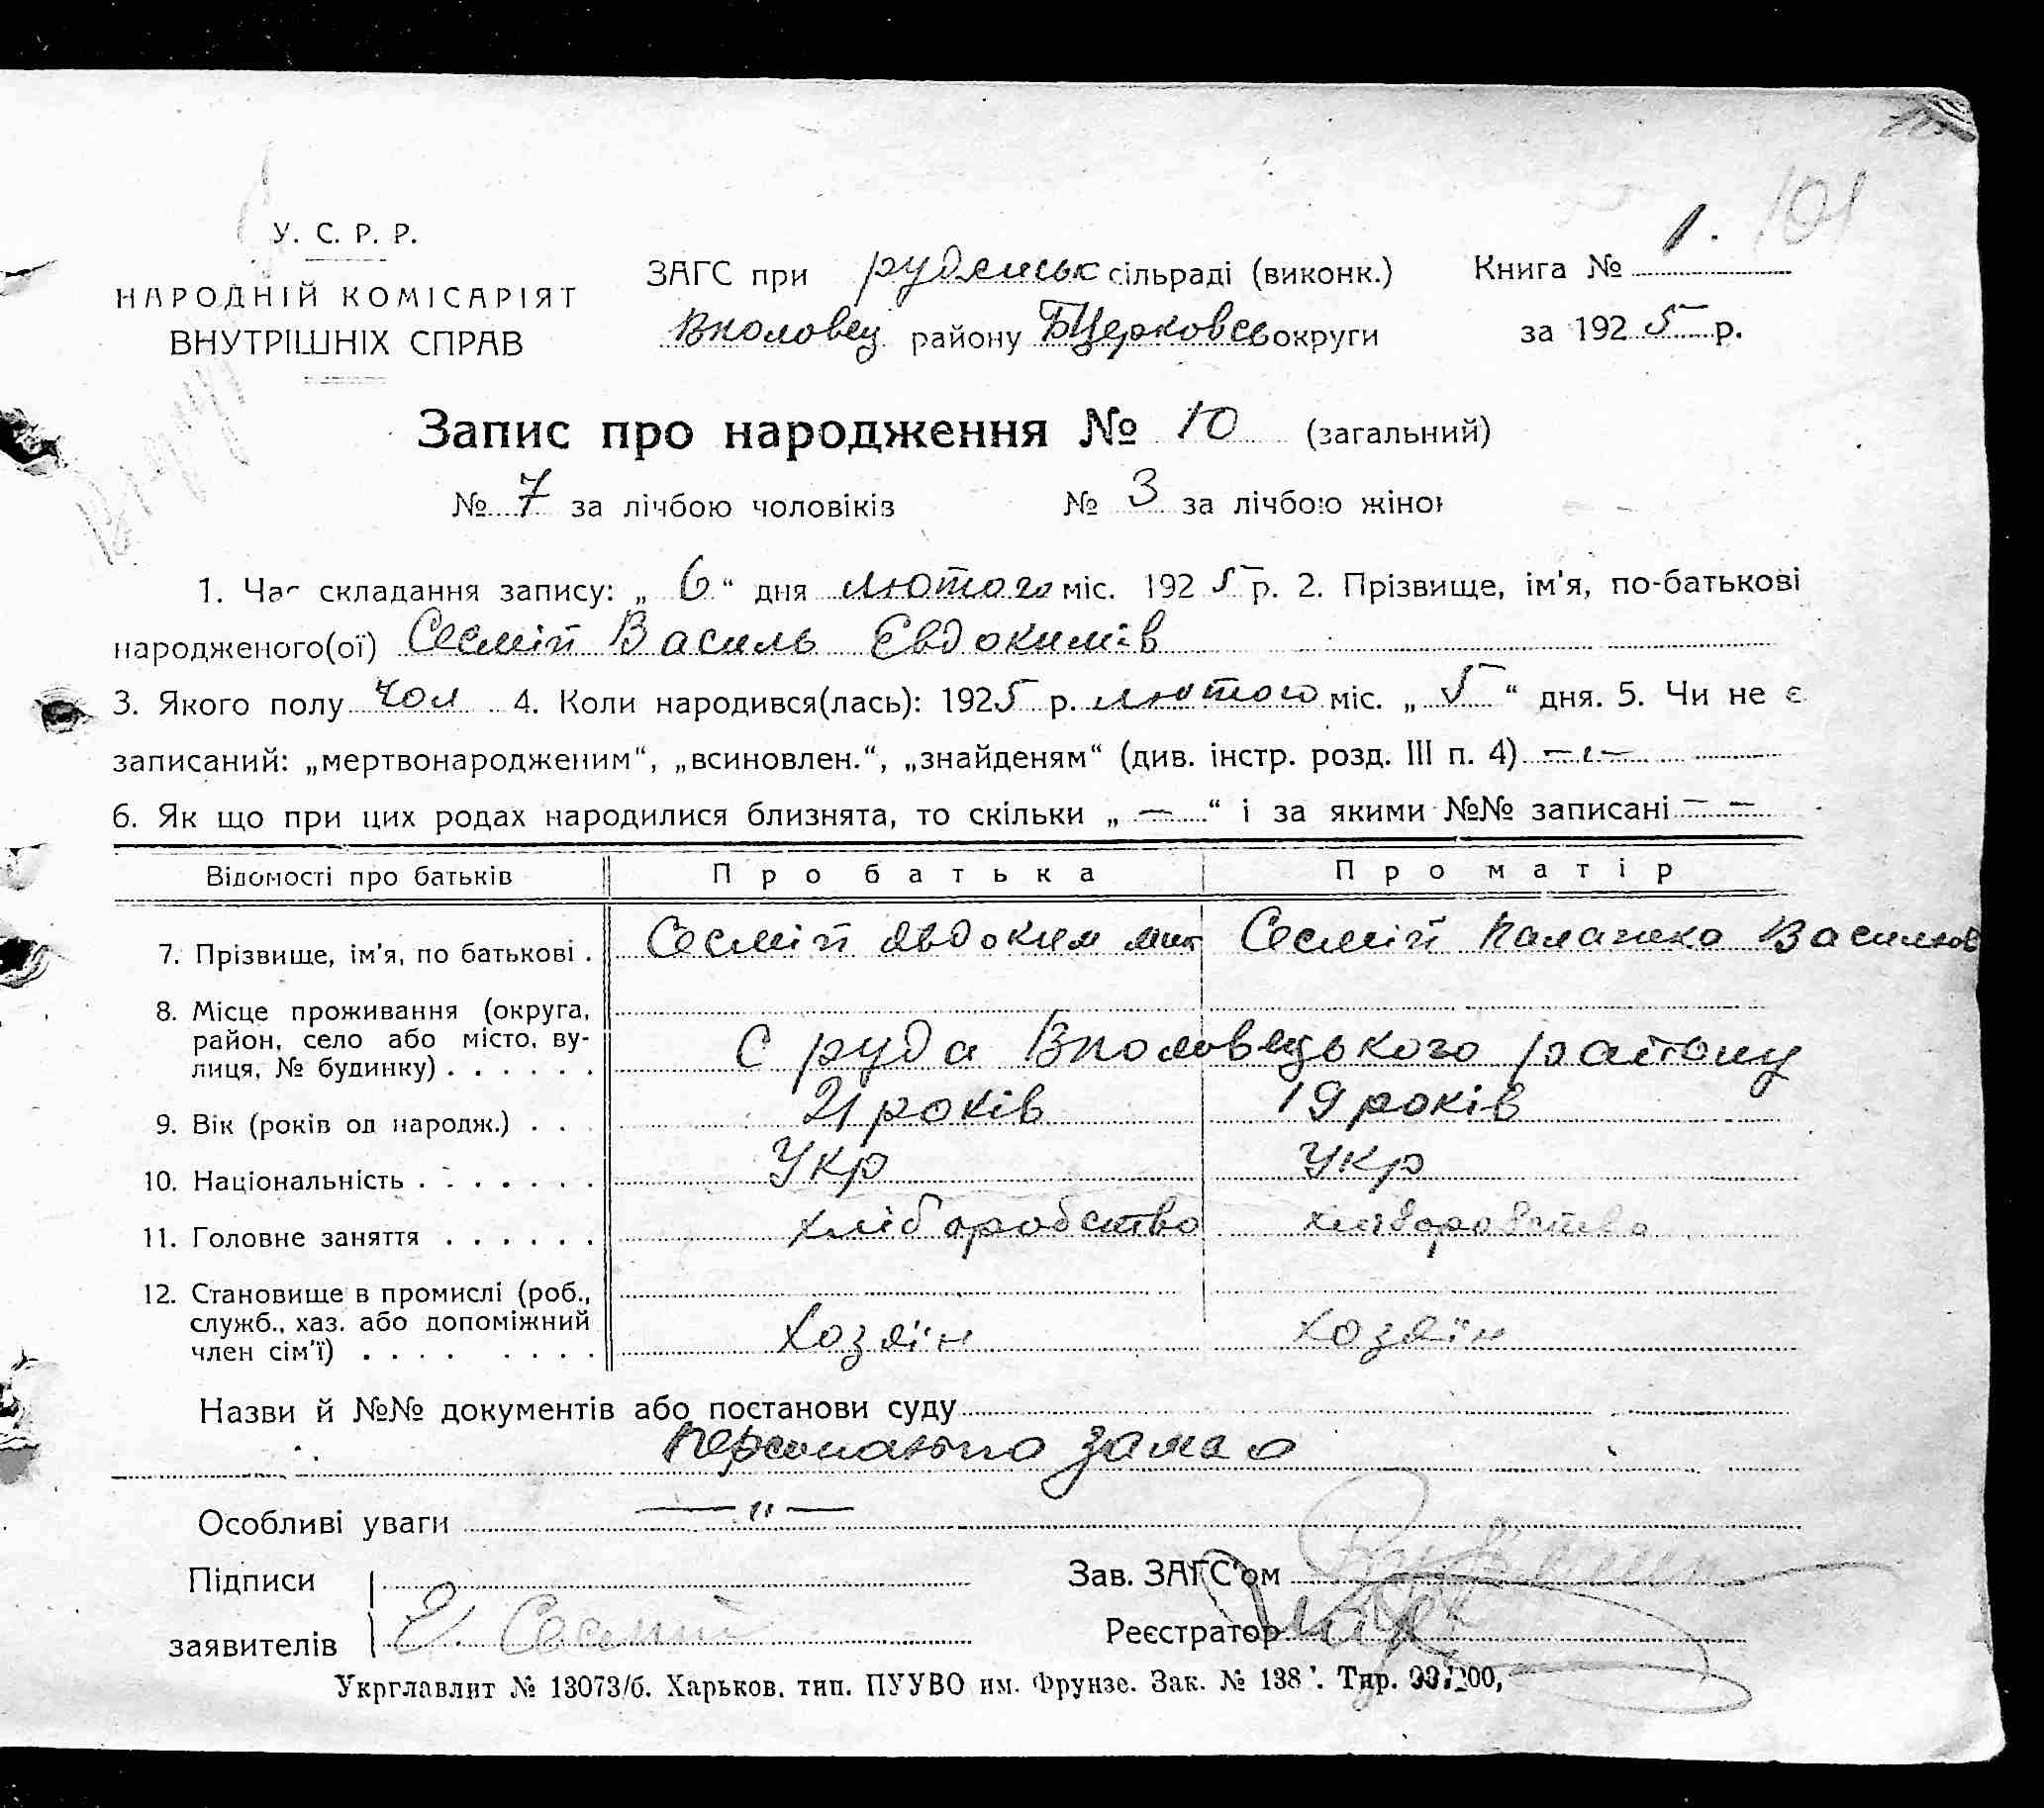 101
У. С. Р. Р.
НАРОДНІЙ КОМІСАРІЯТ
ВНУТРІШНІХ СПРАВ
ЗАГС при рудянськ сільраді (виконк.)
Вполовец. району БЦерковсь округи
Книга № 1.
за 1925 р.
Запис про народження № 10 (загальний)
№ 7 за лічбою чоловіків № 3 за лічбою жінок
1. Час складання запису: „ 6 “ дня лютого міс. 1925 р. 2. Прізвище, ім'я, по-батькові
народженого(ої) Сесмій Василь Євдокимів
3. Якого полу чол 4. Коли народився(лась): 1925 р. лютого міс. „ 5 “ дня. 5. Чи не є
записаний: „мертвонародженим“, „всиновлен.“, „знайденям“ (див. інстр. розд. III п. 4) —„—
6. Як що при цих родах народилися близнята, то скільки „ — “ і за якими №№ записані — —
Відомості про батьків Про батька Про матір
7. Прізвище, ім'я, по батькові . Сесмій Явдоким мит Сесмій Палажка Василів
8. Місце проживання (округа,
район, село або місто, ву-
лиця, № будинку) . . . . . . С руда Вполовецького району
9. Вік (років од народж.) . . . 21 років 19 років
10. Національність . . . . . . . Укр Укр
11. Головне заняття . . . . . . хліборобство хліборобство
12. Становище в промислі (роб.,
служб., хаз. або допоміжний
член сім'ї) . . . . . . . . Хозяїн Хозяїн
Назви й №№ документів або постанови суду
персонально
Особливі уваги —„—
Підписи
заявителів Є. Сесмій
Зав. ЗАГС'ом
Реєстратор
Укрглавлит № 13073/б. Харьков, тип. ПУУВО им. Фрунзе. Зак. № 138 . Тир.